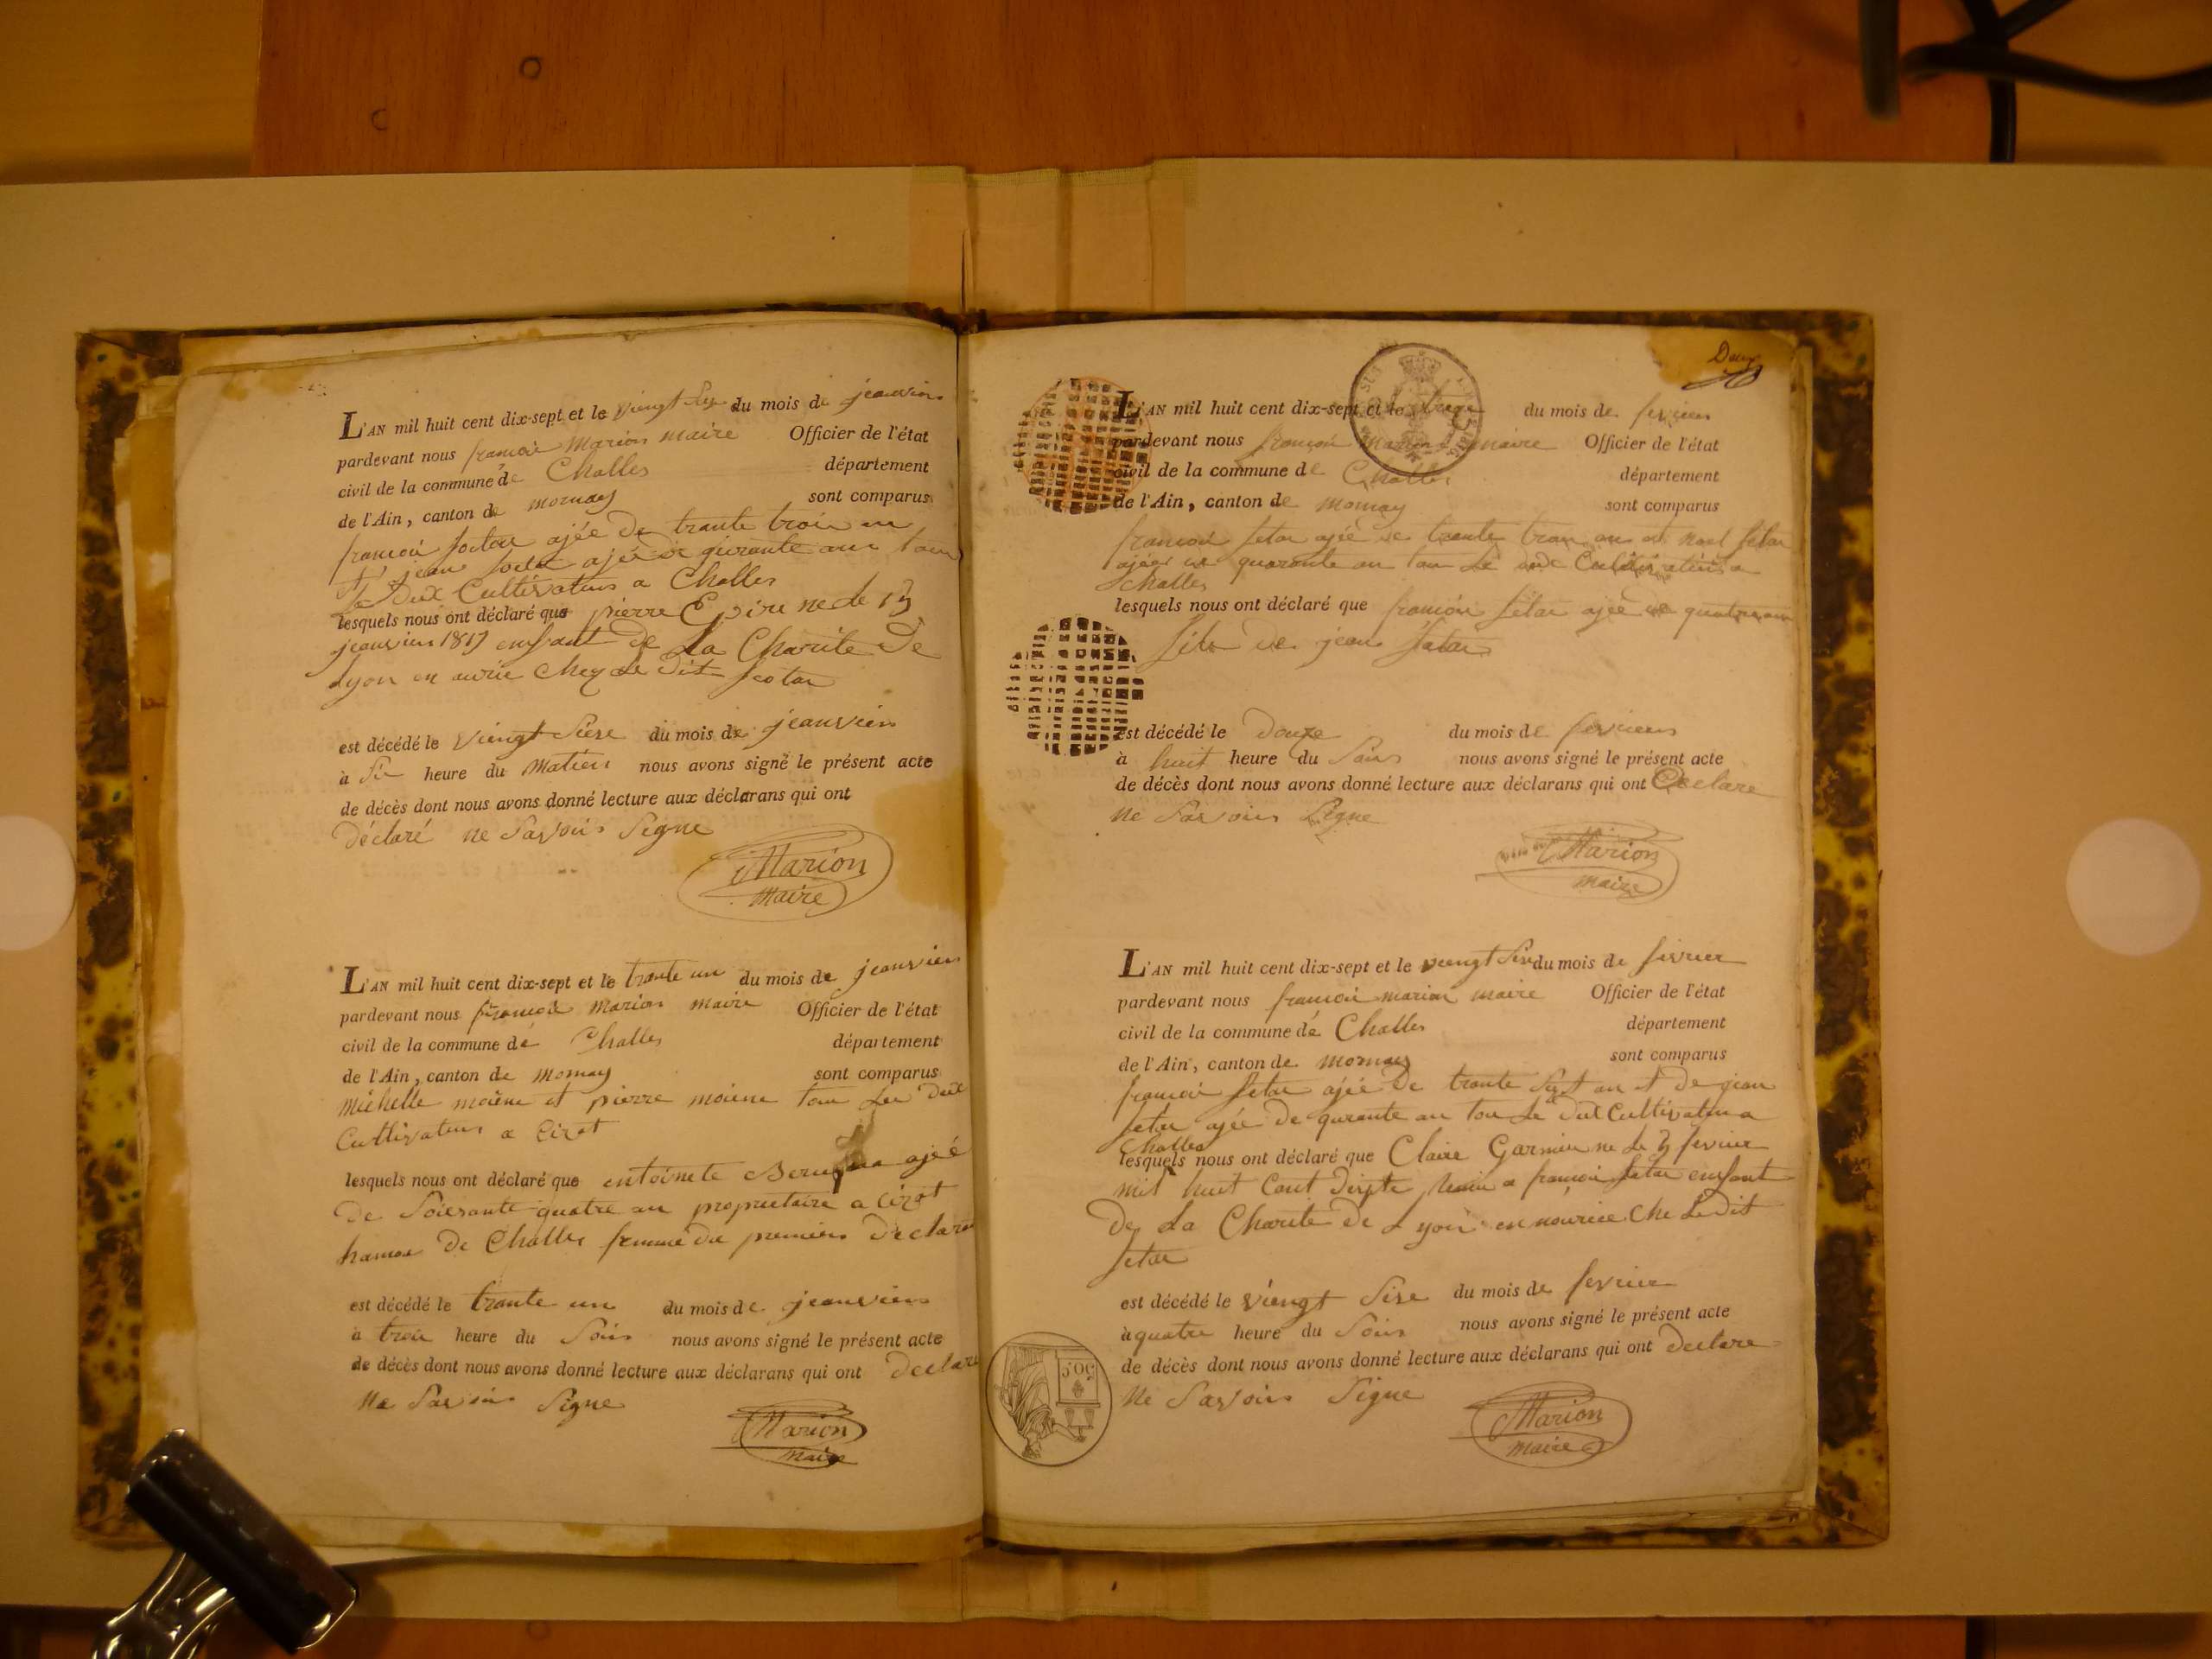 L'AN mil huit cent dix-sept et le viengt du mois de jeanvier
pardevant nous francoi Marion maire Officier de l'état
civil de la commune de Challes département
de l'Ain, canton de mornay sont comparus
francoi ajée de trante troi an
et jean ajée de qurante an tou
le deux Cultivateur a Challes
lesquels nous ont déclaré que pierre Epire ne le 13
jeanvier 1817 enfant de La Charite de
Lyon en chez le dit
est décédé le viengt Siese du mois de jeanvier
à Si heure du Matien nous avons signé le présent acte
de décès dont nous avons donné lecture aux déclarans qui ont
déclaré ne Savoir Signe
Marion
Maire
L'AN mil huit cent dix-sept et le trante un du mois de jeanvier
pardevant nous francoi Marion maire Officier de l'état
civil de la commune de Challes département
de l'Ain, canton de mornay sont comparus
Michelle moiene et pierre moiene tou Les deux
Cultivateur a Cizot
lesquels nous ont déclaré que entoinete ajeé
de Soiesante quatre an proprietaire a Cizot
hamau de Challes femme du premier Declaran
est décédé le trante un du mois de jeanvier
à troi heure du Soir nous avons signé le présent acte
de décès dont nous avons donné lecture aux déclarans qui ont declare
Ne Savoir Signe
Marion
Maire
Deux
L'AN mil huit cent dix-sept et le treze du mois de fevrier
pardevant nous francoi Marion maire Officier de l'état
civil de la commune de Challes département
de l'Ain, canton de mornay sont comparus
francoi fetar ajée de trante an et noel fetar
ajée de quarante an tou le deux Cultivateur a
Challes
lesquels nous ont déclaré que francoi fetar ajeé de quatre an
fils de jean fatar
est décédé le Douze du mois de fevrier
à huit heure du Soir nous avons signé le présent acte
de décès dont nous avons donné lecture aux déclarans qui ont Declare
ne Savoir Signe
Marion
maire
L'AN mil huit cent dix-sept et le viengt Sire du mois de fevrier
pardevant nous francoi marion maire Officier de l'état
civil de la commune de Challes département
de l'Ain, canton de mornay sont comparus
francoi fetar ajée de trante Sept an et de jean
fetar ajée de qurante an tou le deux Cultivateur a
Challes
lesquels nous ont déclaré que Claire Garnier ne le 3 fevrier
mil huit Cent a francoi fetar enfant
de La Charite de Lyon en nourice Che Le dit
fetar
est décédé le viengt Sise du mois de fevrier
à quatre heure du Soir nous avons signé le présent acte
de décès dont nous avons donné lecture aux déclarans qui ont declare
Ne Savoir Signe
50c
Marion
maire